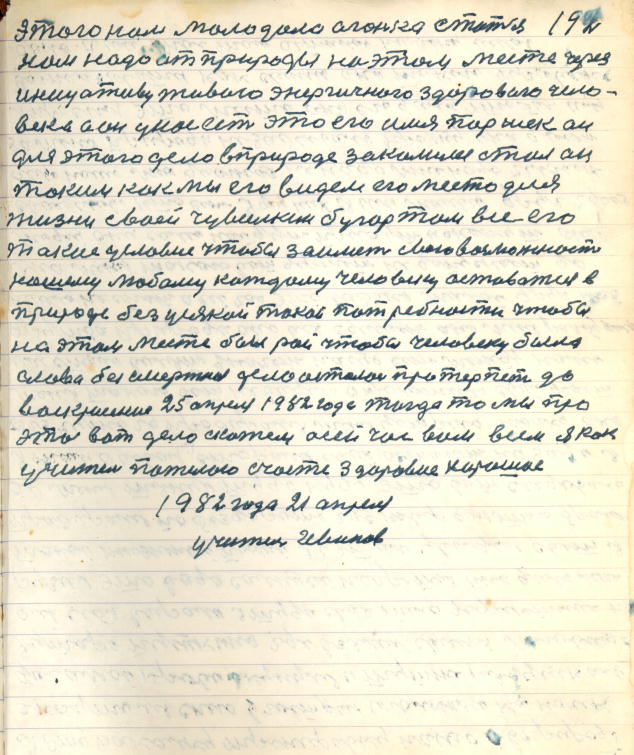 этого нам молодала огонка статия 192
нам надо от природы на этом месте через
инициативу живого энергичного здорового чело-
века аон унас есть это его имя парнек он
для этого дело в природе закалили стал он
таким как мы его видем его место для
жизни своей чувилкин бугор там все его
такие условие чтобы заиметь возможност
нашему любому каждому человеку оставатся в
природе без усякой такой потребности чтобы
на этом месте был рай чтобы человеку была
слова бессмертия дело осталос протерпет до
воскрисиние 25 апрел 1982 года тогда то мы про
это вот дело скажем осей час вам всем я как
учител пожелаю счасте здоровие хорошое
1982 года 21 апрел
учител Иванов